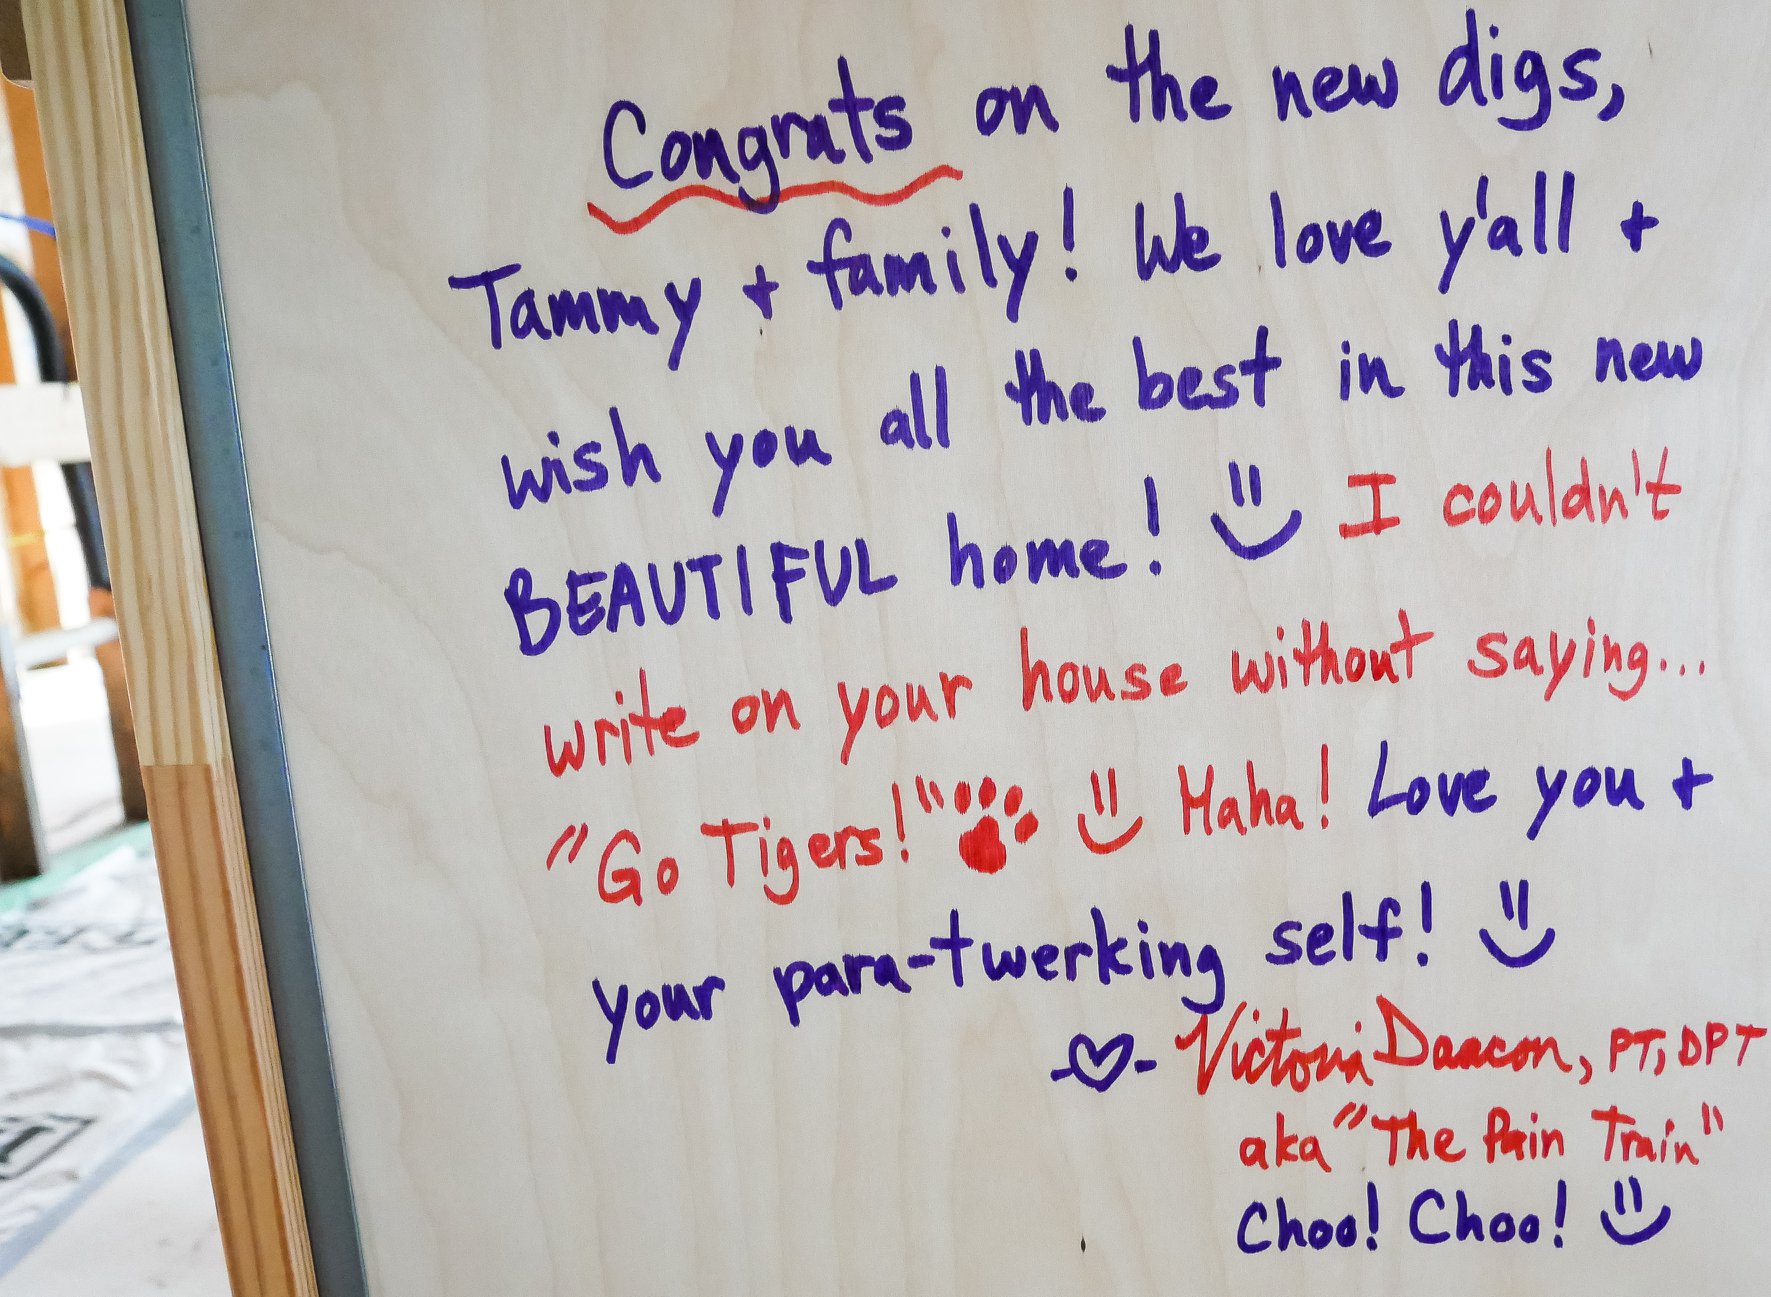 Congrats on the new digs,
Tammy + family! We love y'all +
wish you all the best in this new
BEAUTIFUL home! I couldn't
write on your house without saying...
"Go Tigers!" Haha! Love you +
your para-twerking self!
Victoria Daacon, PT, DPT
aka "The Pain Train"
Choo! Choo!